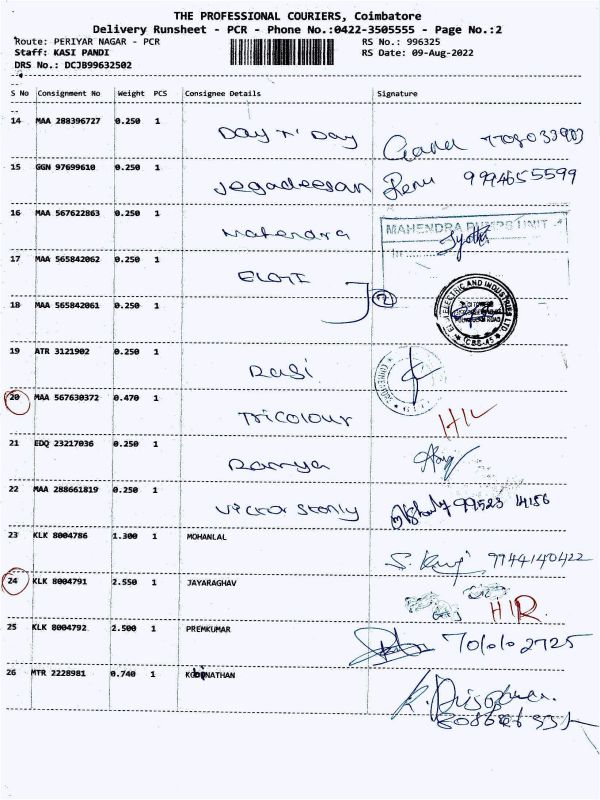 THE PROFESSIONAL COURIERS, Coimbatore
Delivery Runsheet - PCR - Phone No.:0422-3505555 - Page No.:2
Route: PERIYAR NAGAR - PCR RS No.: 996325
Staff: KASI PANDI RS Date: 09-Aug-2022
DRS No.: DCJB99632502
S No Consignment No Weight PCS Consignee Details Signature
14 MAA 288396727 0.250 1 Day n' Day
15 GGN 97699610 0.250 1 Jegadeesan Renu 9994655599
16 MAA 567622863 0.250 1 Mahendra MAHENDRA PUMPS UNIT Jyothi
17 MAA 565842062 0.250 1 ELGTI 2
18 MAA 565842061 0.250 1 ELECTRIC AND INDUSTRIES LTD
19 ATR 3121902 0.250 1 Rasi
20 MAA 567630372 0.470 1 Tricolour
21 EDQ 23217036 0.250 1 Ramya
22 MAA 288661819 0.250 1 Victor Stanly 99523 14156
23 KLK 8004786 1.300 1 MOHANLAL 9944140422
24 KLK 8004791 2.550 1 JAYARAGHAV HIR
25 KLK 8004792 2.500 1 PREMKUMAR
26 MTR 2228981 0.740 1